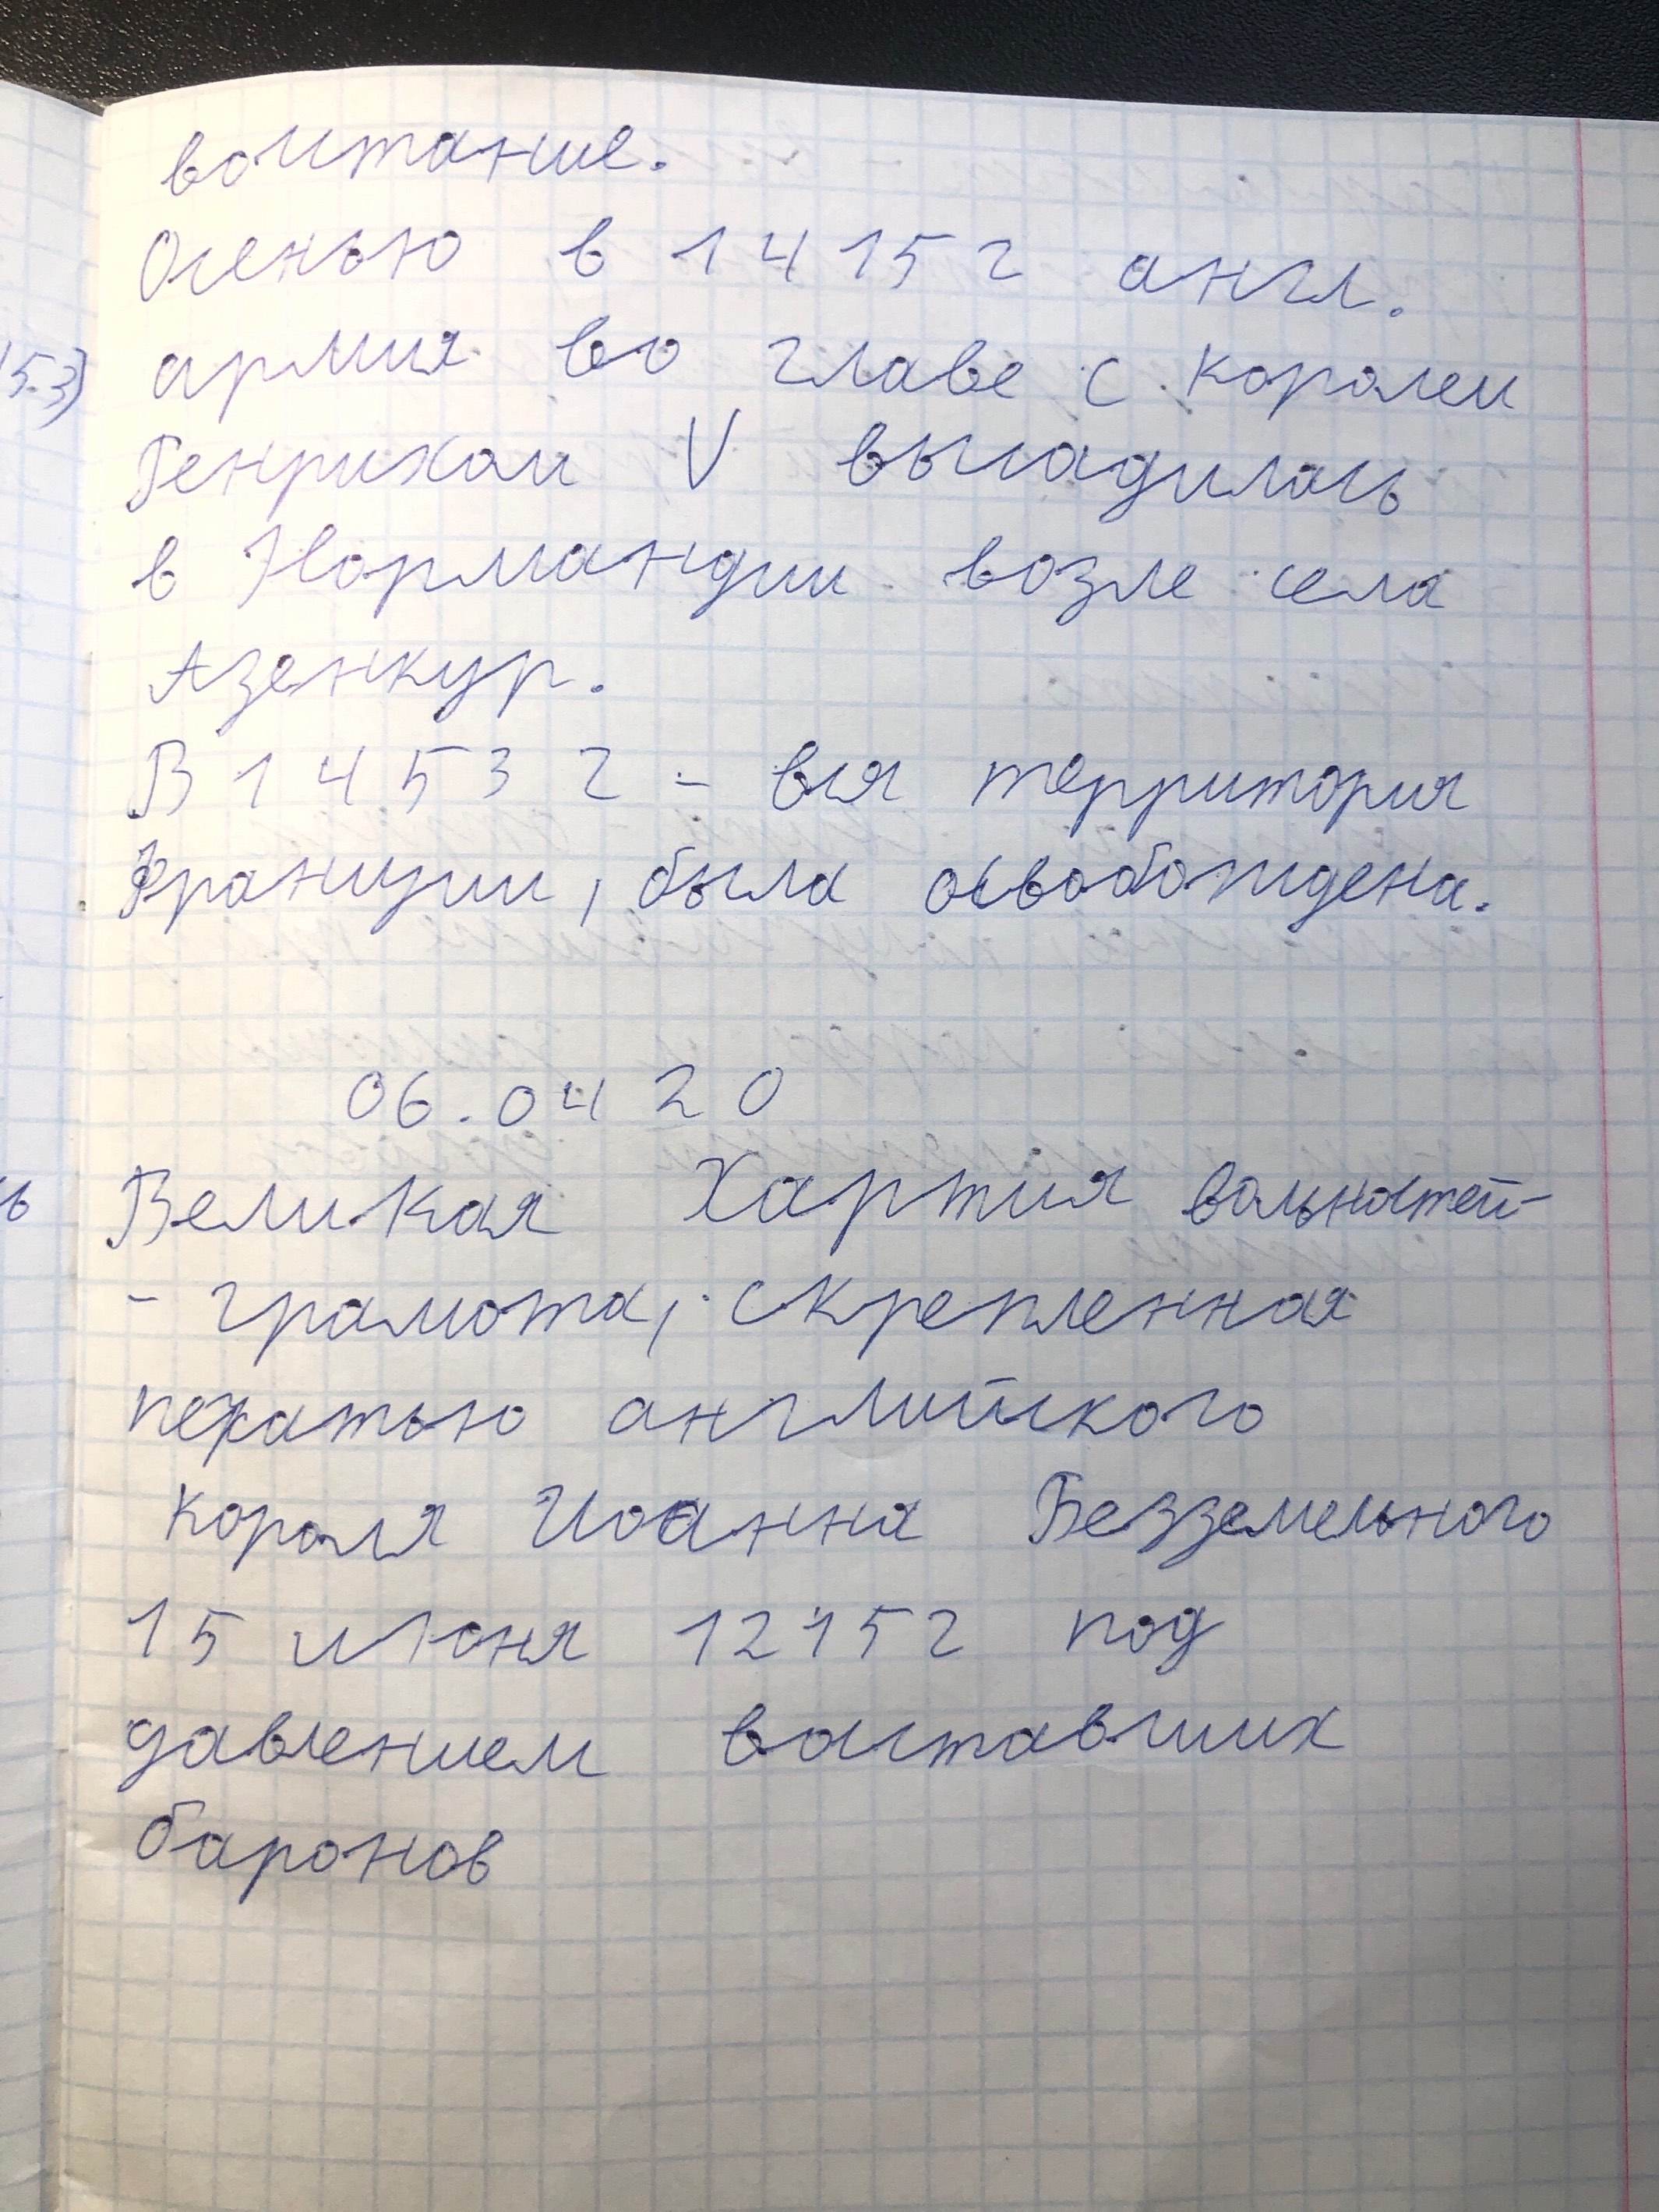 восстание.
Осенью в 1415 г англ.
армия во главе с королем
Генрихом V высадилась
в Нормандии возле села
Азенкур.
В 1453 г - вся территория
Франции, была освобождена.
06.04 20
Великая Хартия вольностей-
- грамота, скрепленная
печатью английского
короля Иоанна Безземельного
15 июня 1215 г под
давлением восставших
баронов